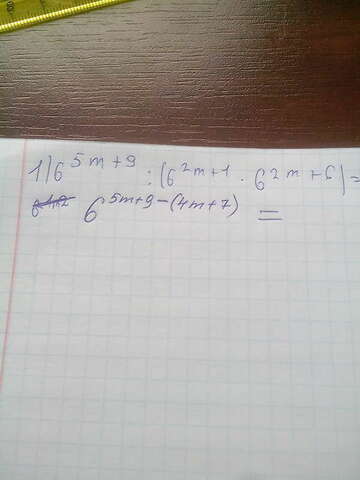 1) 6^{5m+9} : (6^{2m+1} · 6^{2m+6}) =
6^{5m+9-(4m+7)} =